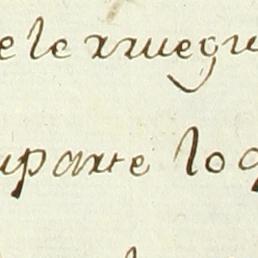 e le rruegu
uparte lo q